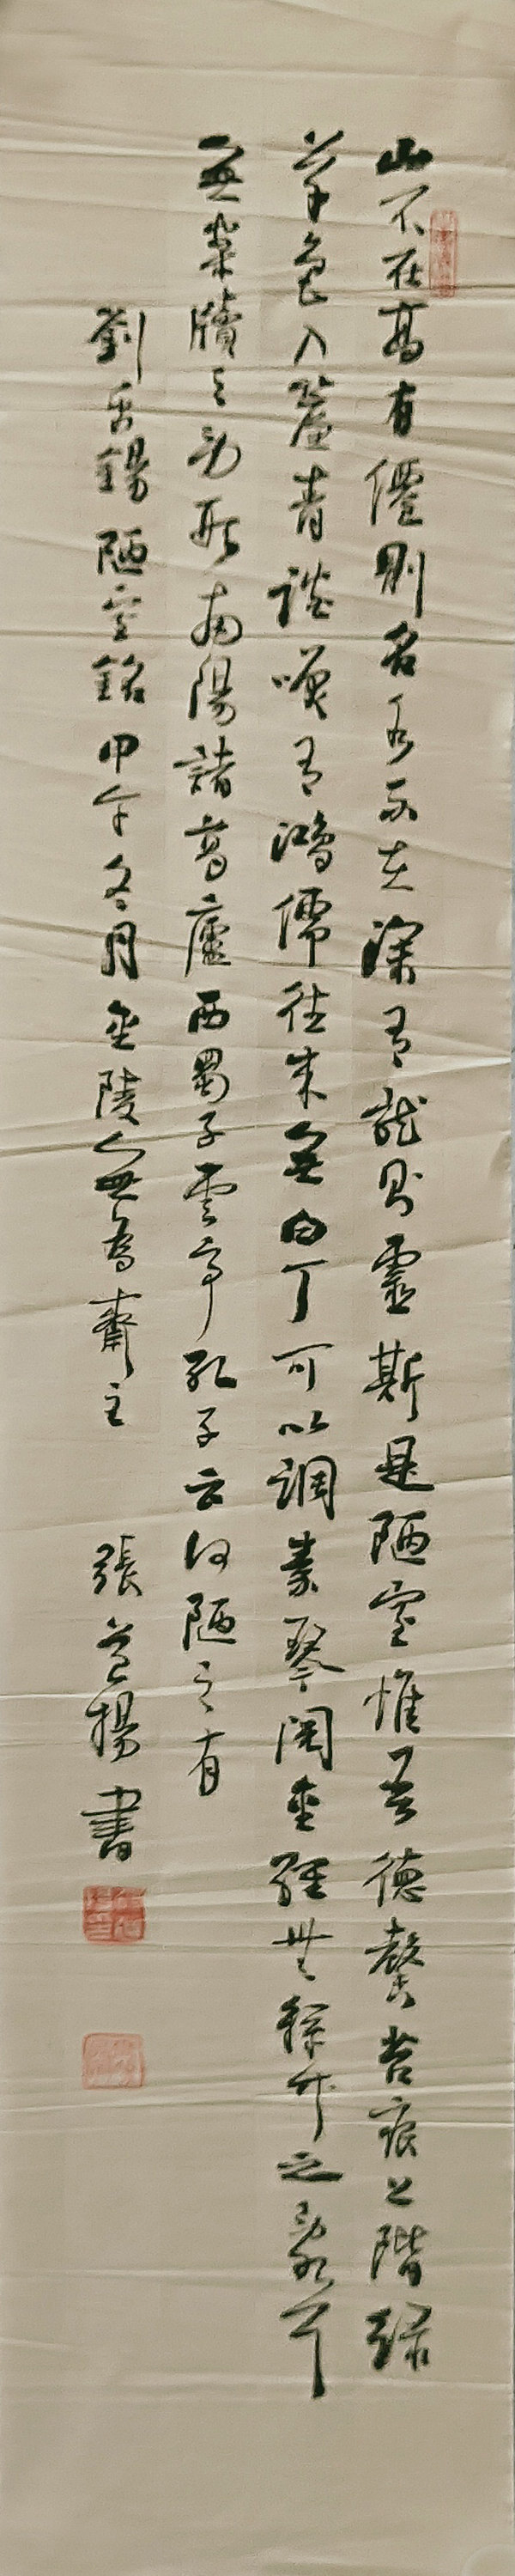 山不在高有僊則名水不在深有龍則靈斯是陋室惟吾德馨苔痕上階緑
草色入簾青談咲有鴻儒往来無白丁可以調素琴閲金經無絲竹之亂耳
無案牘之勞形南陽諸葛廬西蜀子雲亭孔子云何陋之有
劉禹錫陋室銘甲午冬月金陵無為齋主 張揚書